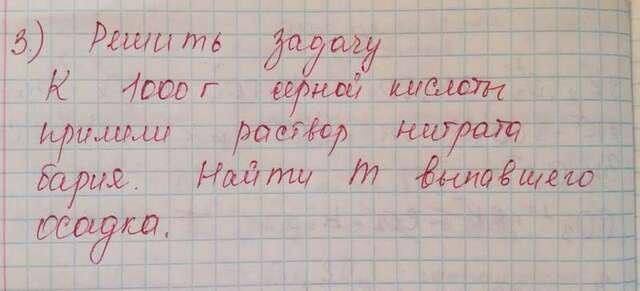 3.) Решить задачу
К 1000 г серной кислоты
прилили раствор нитрата
бария. Найти m выпавшего
осадка.